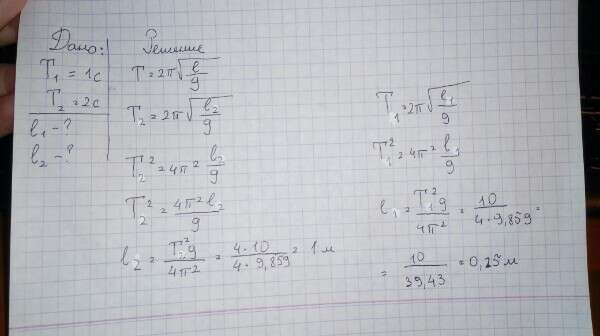 Дано:
T₁ = 1c
T₂ = 2c
l₁ - ?
l₂ - ?
Решение
T = 2π√(l/g)
T₂ = 2π√(l₂/g)
T₂² = 4π² l₂/g
T₂² = 4π² l₂/g
l₂ = T₂² g/4π² = 4·10/4·9,859 = 1 м
T₁ = 2π√(l₁/g)
T₁² = 4π² l₁/g
l₁ = T₁² g/4π² = 10/4·9,859 =
= 10/39,43 = 0,25 м